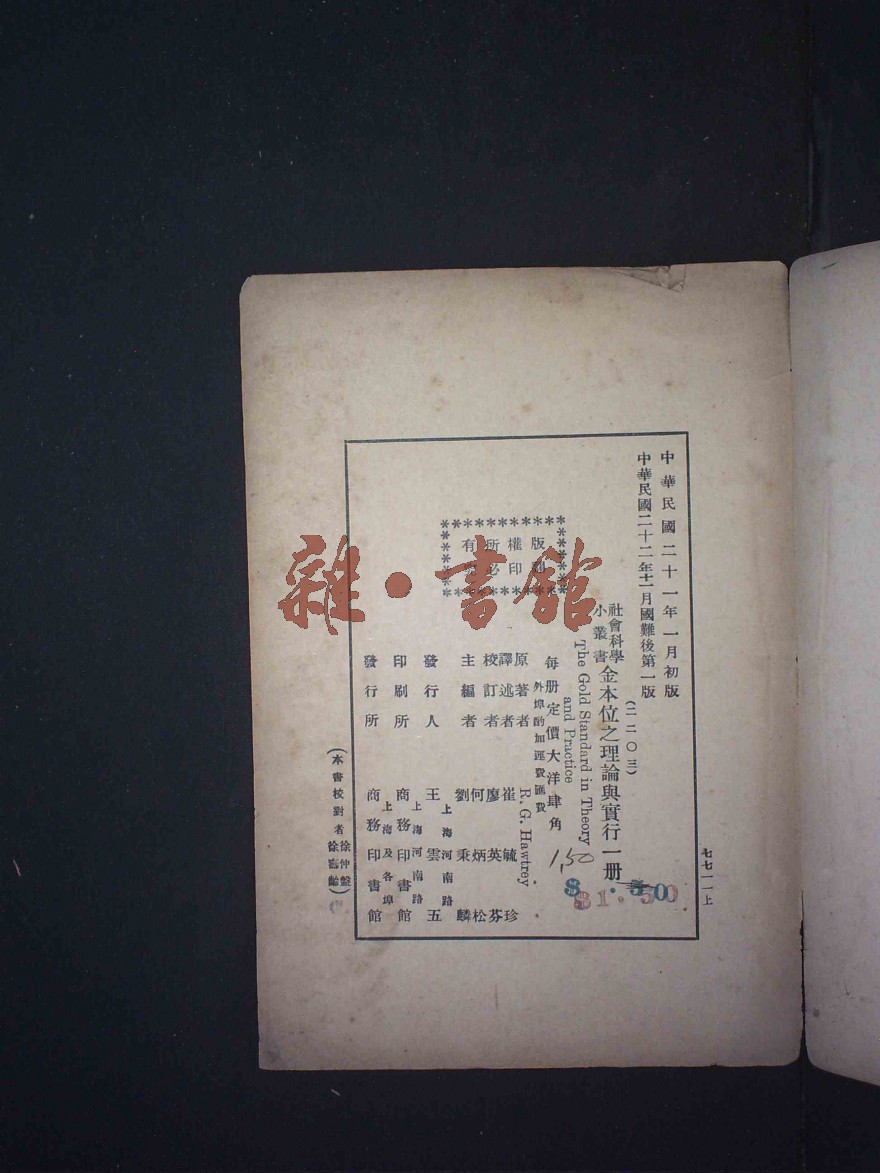 中華民國二十一年一月初版
中華民國二十二年十一月國難後第一版
(二二〇三)
社會科學
小叢書
金本位之理論與實行一冊
The Gold Standard in Theory
and Practice
每冊定價大洋肆角
外埠酌加運費匯費
1,50
$1.50
原著者 R. G. Hawtrey
譯述者 崔毓珍 廖英芬
校訂者 何炳松
主編者 劉秉麟
發行人 王雲五
上海河南路
印刷所 商務印書館
上海河南路
發行所 商務印書館
上海及各埠
版權所有
印必
七七一一上
雜·書館